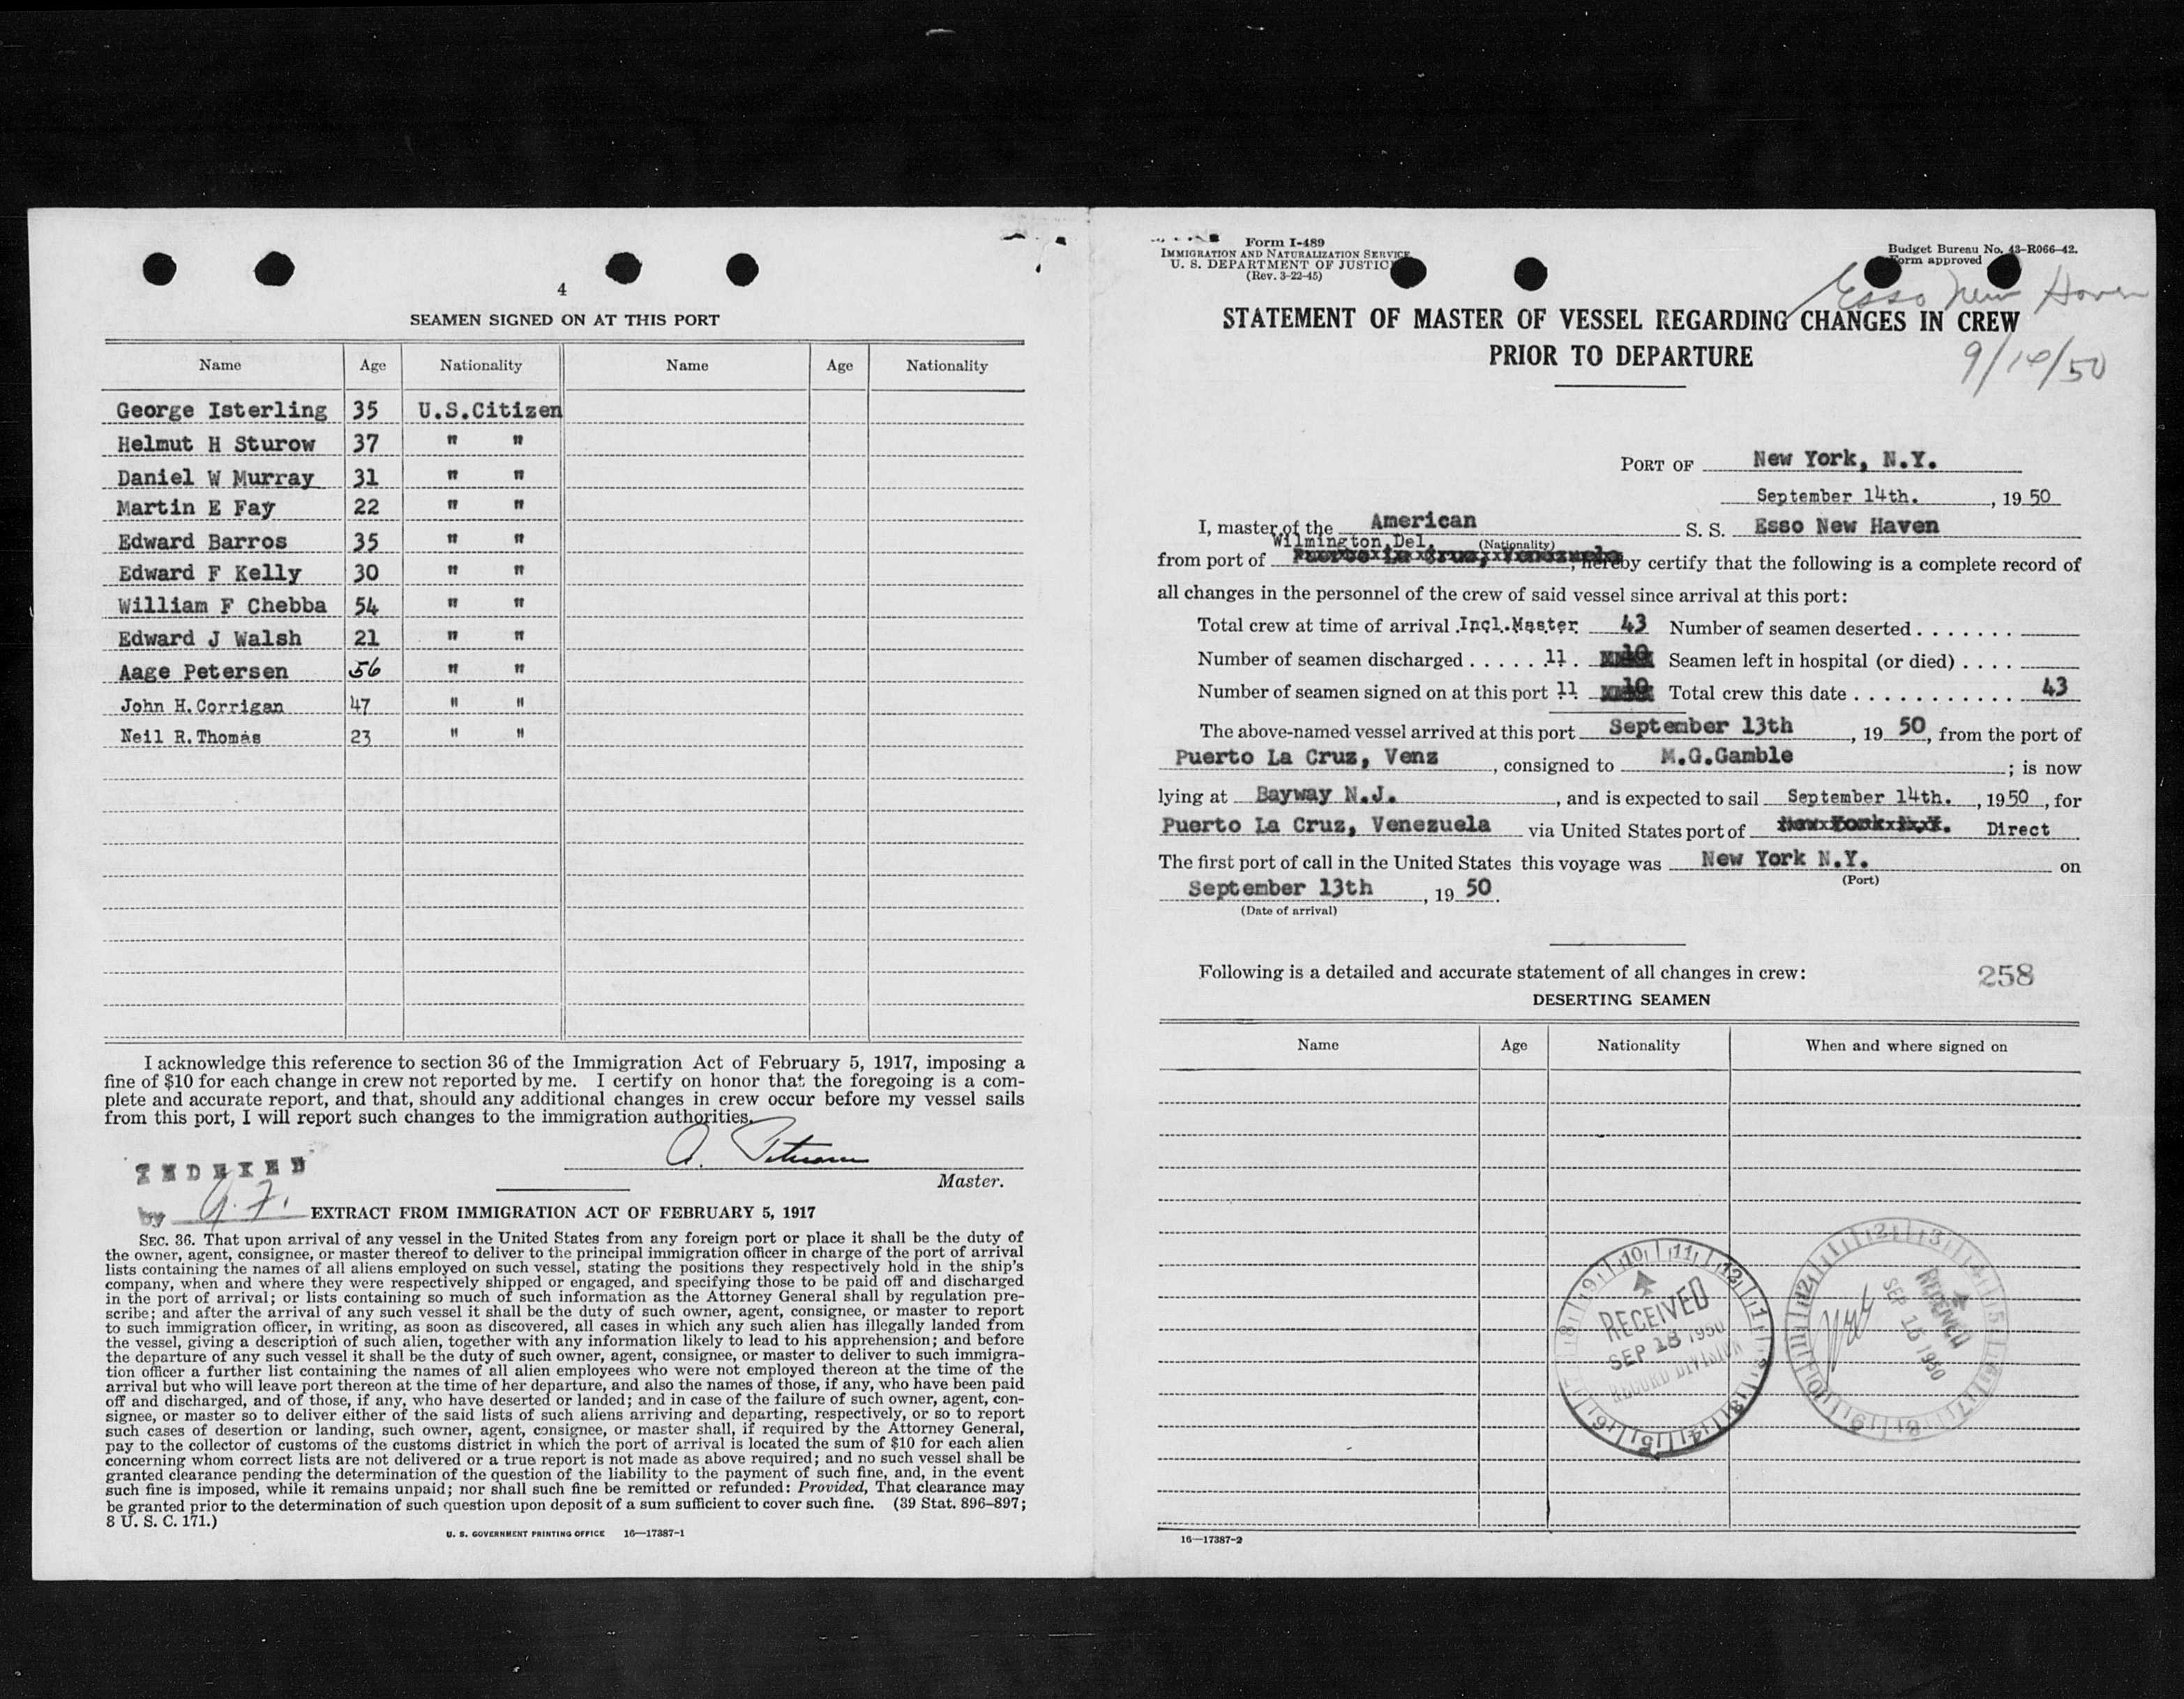 4
SEAMEN SIGNED ON AT THIS PORT
Name Age Nationality Name Age Nationality
George Isterling 35 U.S.Citizen
Helmut H Sturow 37 " "
Daniel W Murray 31 " "
Martin E Fay 22 " "
Edward Barros 35 " "
Edward F Kelly 30 " "
William F Chebba 54 " "
Edward J Walsh 21 " "
Aage Petersen 56 " "
John H.Corrigan 47 " "
Neil R.Thomas 23 " "
I acknowledge this reference to section 36 of the Immigration Act of February 5, 1917, imposing a
fine of $10 for each change in crew not reported by me. I certify on honor that the foregoing is a com-
plete and accurate report, and that, should any additional changes in crew occur before my vessel sails
from this port, I will report such changes to the immigration authorities.
Master.
INDEXED
by
EXTRACT FROM IMMIGRATION ACT OF FEBRUARY 5, 1917
SEC. 36. That upon arrival of any vessel in the United States from any foreign port or place it shall be the duty of
the owner, agent, consignee, or master thereof to deliver to the principal immigration officer in charge of the port of arrival
lists containing the names of all aliens employed on such vessel, stating the positions they respectively hold in the ship's
company, when and where they were respectively shipped or engaged, and specifying those to be paid off and discharged
in the port of arrival; or lists containing so much of such information as the Attorney General shall by regulation pre-
scribe; and after the arrival of any such vessel it shall be the duty of such owner, agent, consignee, or master to report
to such immigration officer, in writing, as soon as discovered, all cases in which any such alien has illegally landed from
the vessel, giving a description of such alien, together with any information likely to lead to his apprehension; and before
the departure of any such vessel it shall be the duty of such owner, agent, consignee, or master to deliver to such immigra-
tion officer a further list containing the names of all alien employees who were not employed thereon at the time of the
arrival but who will leave port thereon at the time of her departure, and also the names of those, if any, who have been paid
off and discharged, and of those, if any, who have deserted or landed; and in case of the failure of such owner, agent, con-
signee, or master so to deliver either of the said lists of such aliens arriving and departing, respectively, or so to report
such cases of desertion or landing, such owner, agent, consignee, or master shall, if required by the Attorney General,
pay to the collector of customs of the customs district in which the port of arrival is located the sum of $10 for each alien
concerning whom correct lists are not delivered or a true report is not made as above required; and no such vessel shall be
granted clearance pending the determination of the question of the liability to the payment of such fine, and, in the event
such fine is imposed, while it remains unpaid; nor shall such fine be remitted or refunded: Provided, That clearance may
be granted prior to the determination of such question upon deposit of a sum sufficient to cover such fine. (39 Stat. 896-897;
8 U. S. C. 171.)
U. S. GOVERNMENT PRINTING OFFICE 16—17387-1
Form I-489
IMMIGRATION AND NATURALIZATION SERVICE
U. S. DEPARTMENT OF JUSTICE
(Rev. 3-22-45)
Budget Bureau No. 43-R066-42.
Form approved
Esso New Haven
STATEMENT OF MASTER OF VESSEL REGARDING CHANGES IN CREW
PRIOR TO DEPARTURE
9/14/50
PORT OF New York, N.Y.
September 14th. , 19 50
I, master of the American S. S. Esso New Haven
Wilmington,Del. (Nationality)
from port of Puerto La Cruz, Venezuela, hereby certify that the following is a complete record of
all changes in the personnel of the crew of said vessel since arrival at this port:
Total crew at time of arrival .Incl.Master 43 Number of seamen deserted . . . . . . .
Number of seamen discharged . . . . . 11 . 10 Seamen left in hospital (or died) . . . .
Number of seamen signed on at this port 11 10 Total crew this date . . . . . . . . . . . . 43
The above-named vessel arrived at this port September 13th , 19 50, from the port of
Puerto La Cruz, Venz , consigned to M.G.Gamble ; is now
lying at Bayway N.J. , and is expected to sail September 14th. , 1950 , for
Puerto La Cruz, Venezuela via United States port of New York N.Y. Direct
The first port of call in the United States this voyage was New York N.Y. on
(Port)
September 13th , 19 50.
(Date of arrival)
Following is a detailed and accurate statement of all changes in crew:
258
DESERTING SEAMEN
Name Age Nationality When and where signed on
RECEIVED
SEP 18 1950
RECORD DIVISION
RECEIVED
SEP 15 1950
16—17387-2